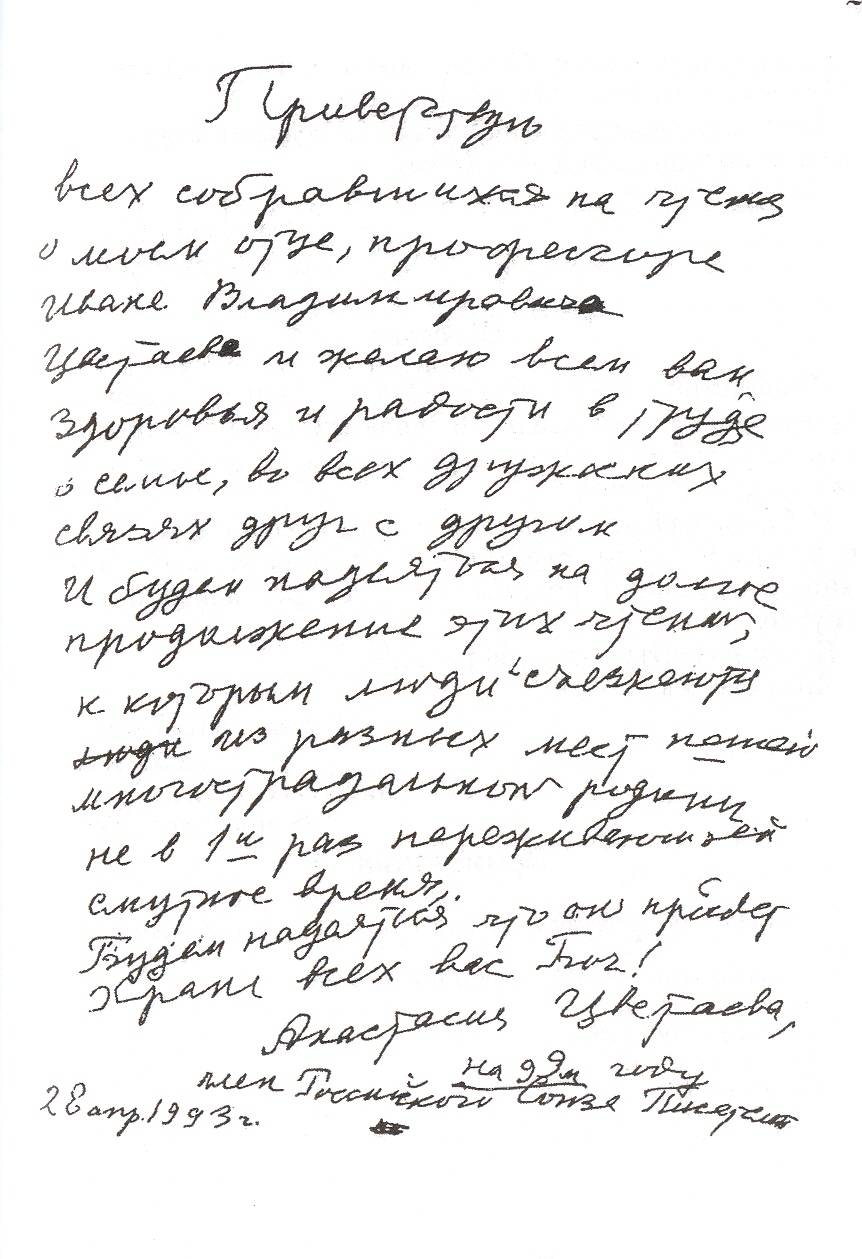 Приветствую
всех собравшихся на чтения
о моем отце, профессоре
Иване Владимировиче
Цветаеве и желаю всем вам
здоровья и радости в труде
в семье, во всех дружеских
связях друг с другом
И будем надеяться на долгое
продолжение этих чтений,
к которым люди съезжаются
люди из разных мест нашей
многострадальной родины
не в 1й раз переживающей
смутное время.
Будем надеяться что оно пройдет
Храни всех вас Бог!
Анастасия Цветаева,
на 99м году
член Российского Союза Писателей
28 апр. 1993 г.